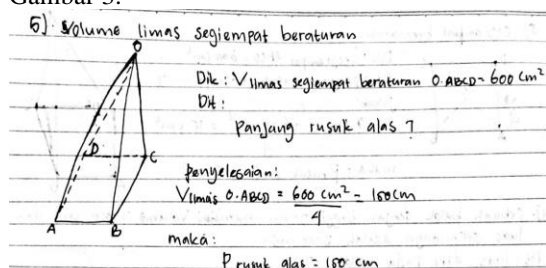 Gambar 3.
5) Volume limas segiempat beraturan
O
Dik : V limas segiempat beraturan O.ABCD = 600 cm²
Dit :
Panjang rusuk alas ?
D
C
penyelesaian:
V limas O.ABCD = 600 cm² = 150 cm
4
A
B
maka :
P rusuk alas = 150 cm